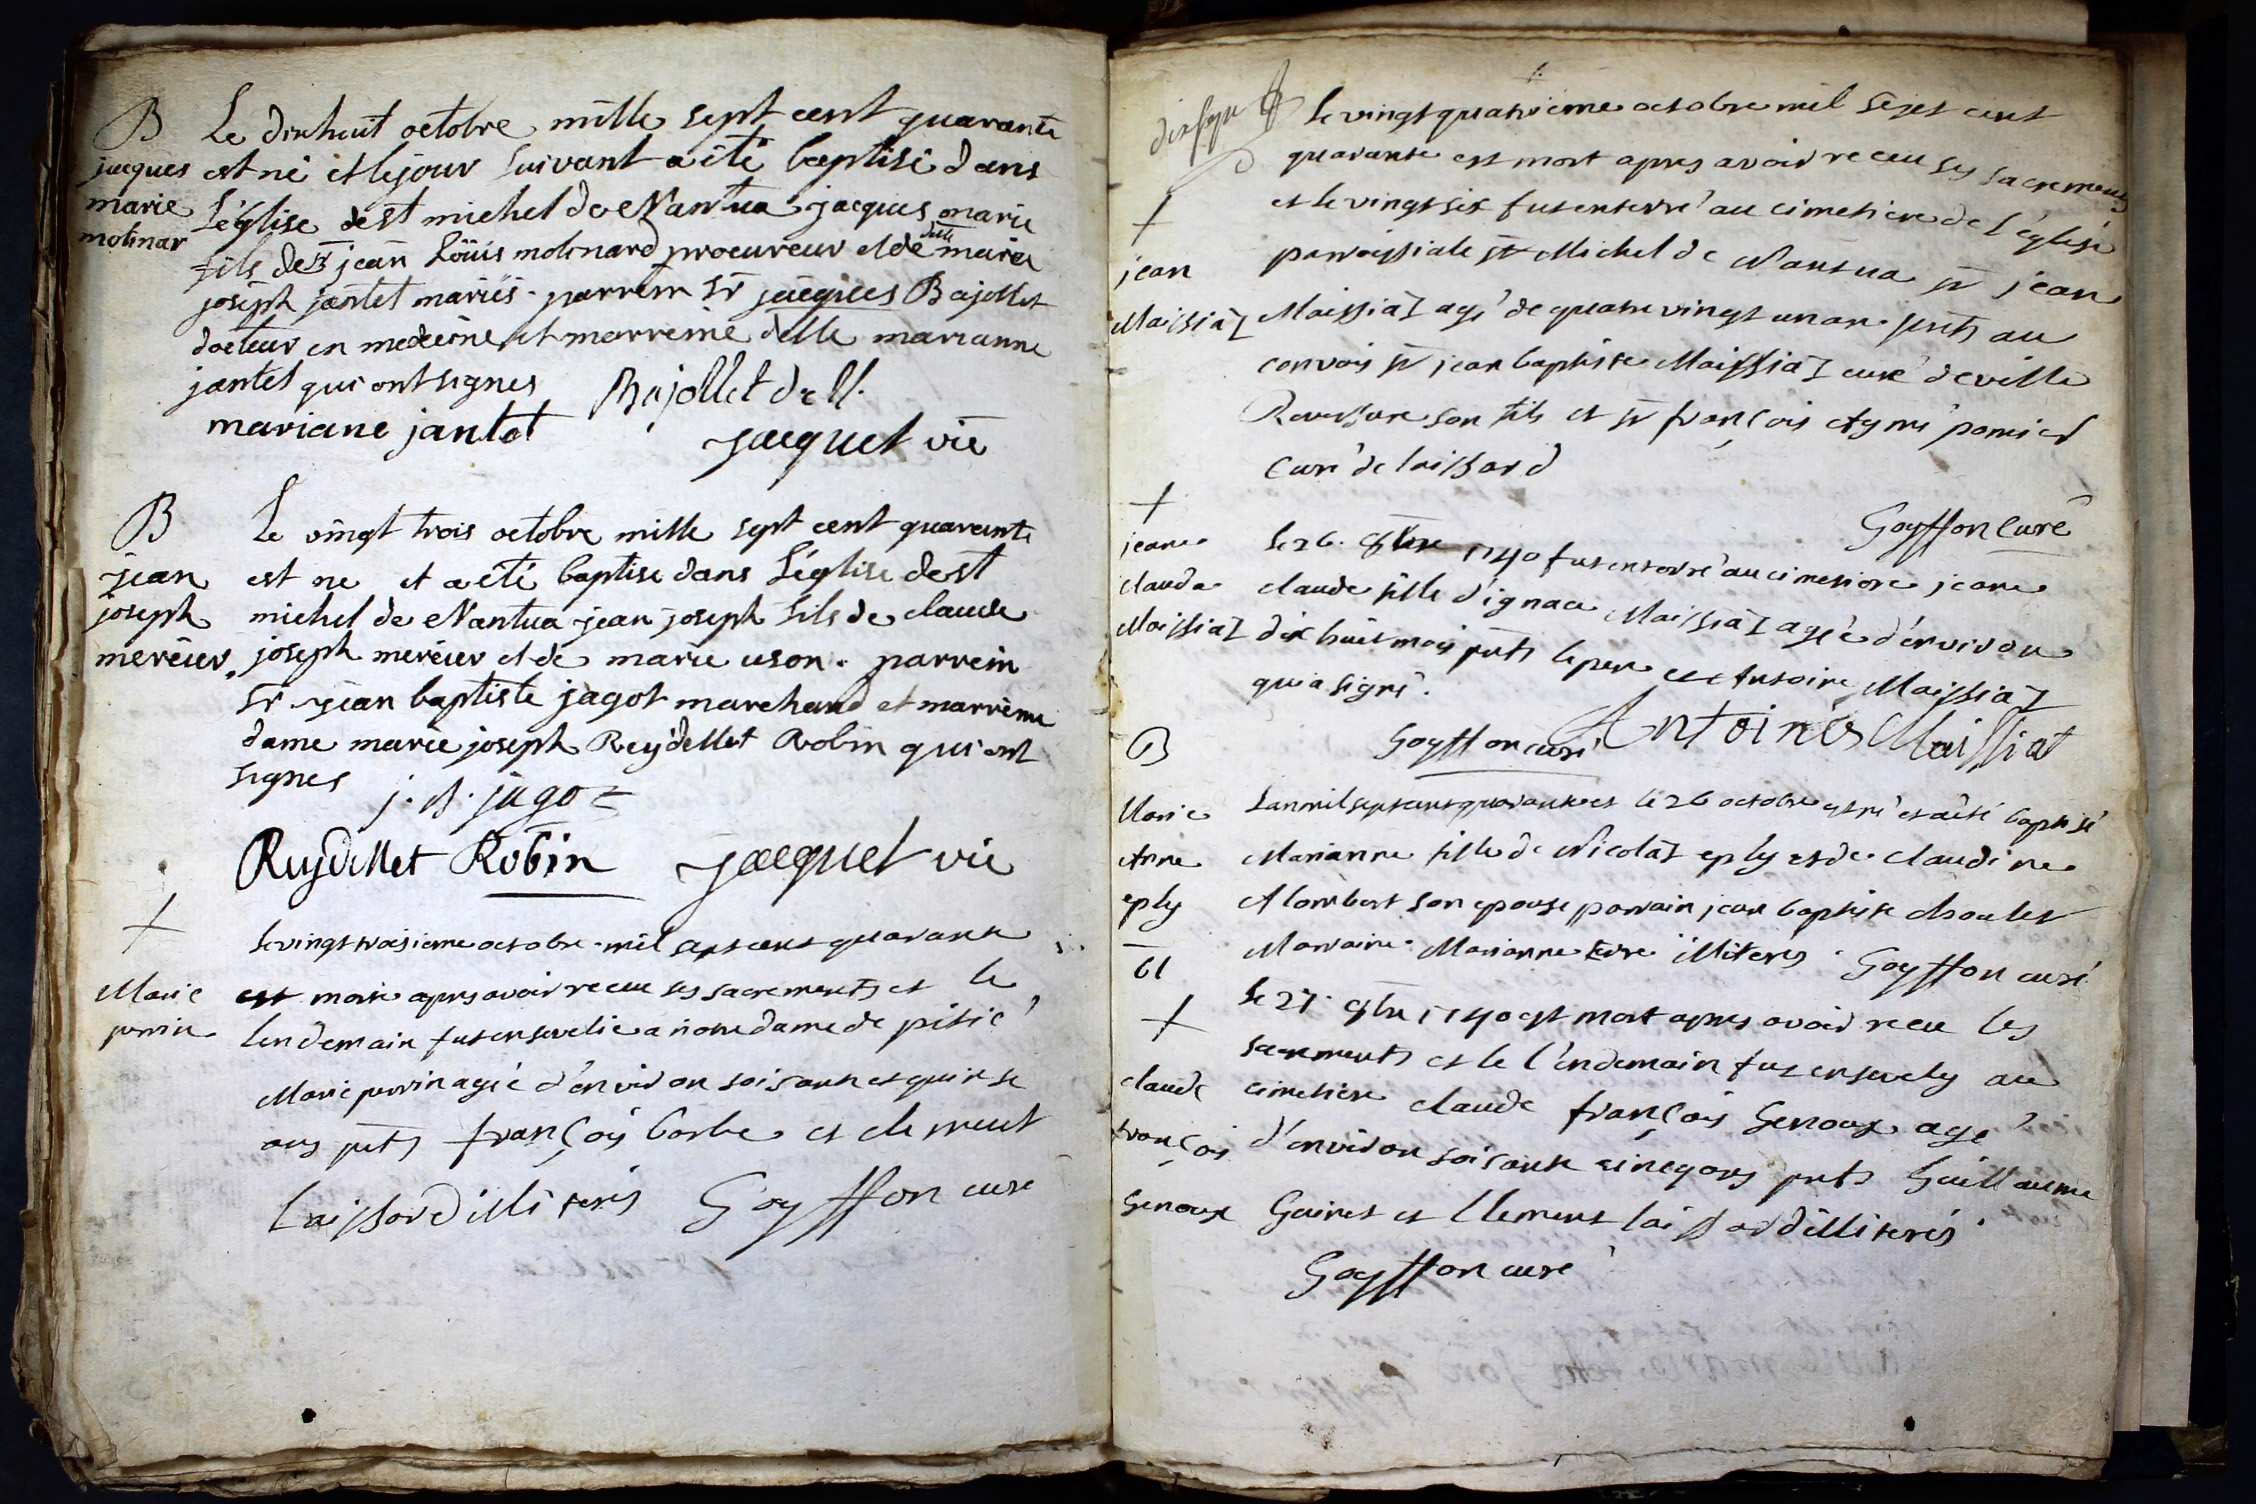 B
Le dixhuit octobre mille sept cent quarante
jacques
est né et le jour suivant a été baptisé dans
marie
L'église de st michel de Nantua jacques marie
molinar
fils de sr jean Loüis molinard procureur et de delle marie
joseph jantet mariés. parrein sr jacques Bajollet
docteur en medecine et marreine delle marianne
jantet qui ont signes
Bajollet
mariane jantet
jacquet vic
B
Le vingt trois octobre mille sept cent quarante
jean
est ne et a été baptise dans L'église de st
joseph
michel de Nantua jean joseph fils de claude
mercier.
joseph mercier et de marie uson. parrein
sr jean baptiste jagot marchand et marreine
dame marie joseph Reydellet Robin qui ont
signes
j. B. jagot
Reydellet Robin
jacquet vic
+
le vingt troisieme octobre mil sept cent quarante
Marie
est morte apres avoir receu ses sacrements et le
perrin
lendemain fut ensevelie a notre dame de pitié
Marie perrin agée d'environ soisante et quinse
ans pnts françois barbe et clement
laissard illiterés
Goyffon curé
le vingtquatrieme octobre mil sept cent
quarante est mort apres avoir receu ses sacrements
+
et le vingt six fut enterré au cimetiere de l'église
jean
parroissiale st Michel de Nantua sr jean
Maissiaz
Maissiaz agé de quatre vingt un an pnts au
convois sr jean baptiste Maissiaz curé de ville
Reversure son fils et sr françois Aymé
curé de laissard
Goyffon Curé
+
jeane
le 26. 8bre 1740 fut enterré au cimetiere jeane
claude
claude fille d'ignace Maissiaz agée d'environ
Maissiaz
dix huit mois pnts le pere et Antoine Maissiaz
qui a signé.
Goyffon curé
Antoine Maissiat
B
Marie
L'an mil sept cent quarante et le 26 octobre est né et a été baptisé
Anne
Marianne fille de Nicolaz eply et de claudine
eply
Alombert son epouse parrain jean baptiste
Marraine Marianne illiterés
Goyffon curé
61
+
le 27. 8bre 1740 est mort apres avoir receu les
sacrements et le l'endemain fut ensevely au
claude
cimetiere claude françois Genoux agé
françois
d'environ soisante cinq ans pnts Guillaume
Genoux
Goiret et Clement laissard illiterés
Goyffon curé